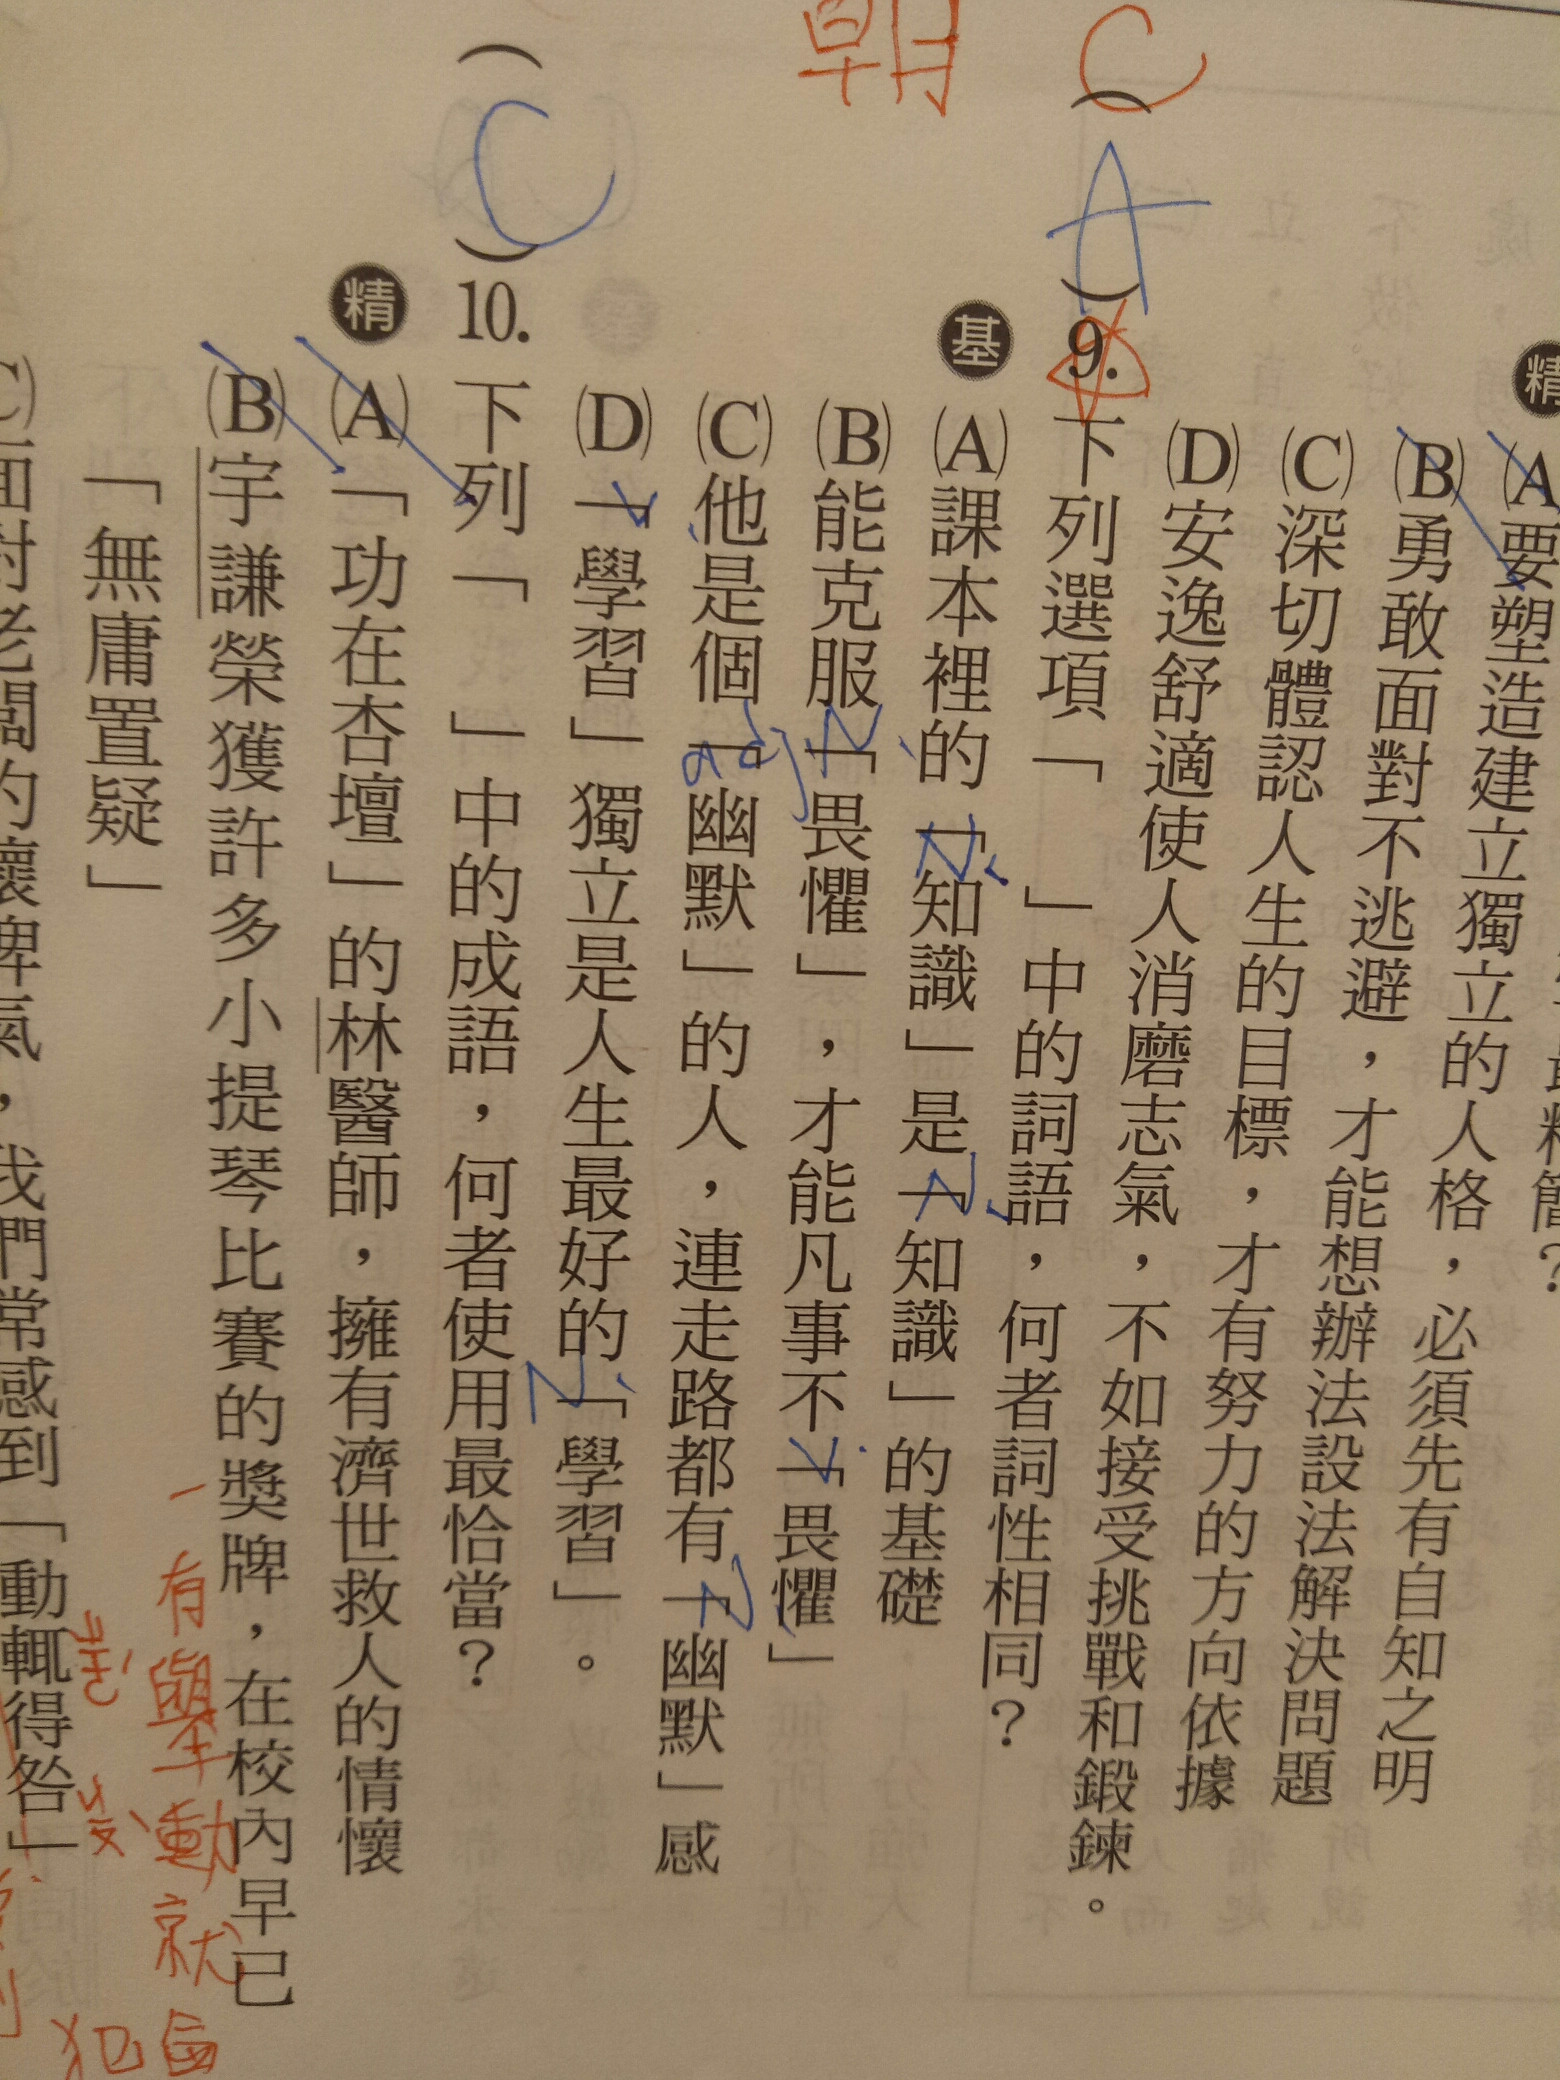 精
(A)要塑造建立獨立的人格，必須先有自知之明
(B)勇敢面對不逃避，才能想辦法設法解決問題
(C)深切體認人生的目標，才有努力的方向依據
(D)安逸舒適使人消磨志氣，不如接受挑戰和鍛鍊。
C
朝
(A)9.下列選項「 」中的詞語，何者詞性相同？
基
(A)課本裡的「知識」是「知識」的基礎
N.
N.
(B)能克服「畏懼」，才能凡事不「畏懼」
N.
V.
(C)他是個「幽默」的人，連走路都有「幽默」感
adj.
N.
(D)「學習」獨立是人生最好的「學習」。
V.
N.
(C)10.下列「 」中的成語，何者使用最恰當？
精
(A)「功在杏壇」的林醫師，擁有濟世救人的情懷
(B)宇謙榮獲許多小提琴比賽的獎牌，在校內早已
「無庸置疑」
(C)面對老闆的壞脾氣，我們常感到「動輒得咎」
一有舉動就